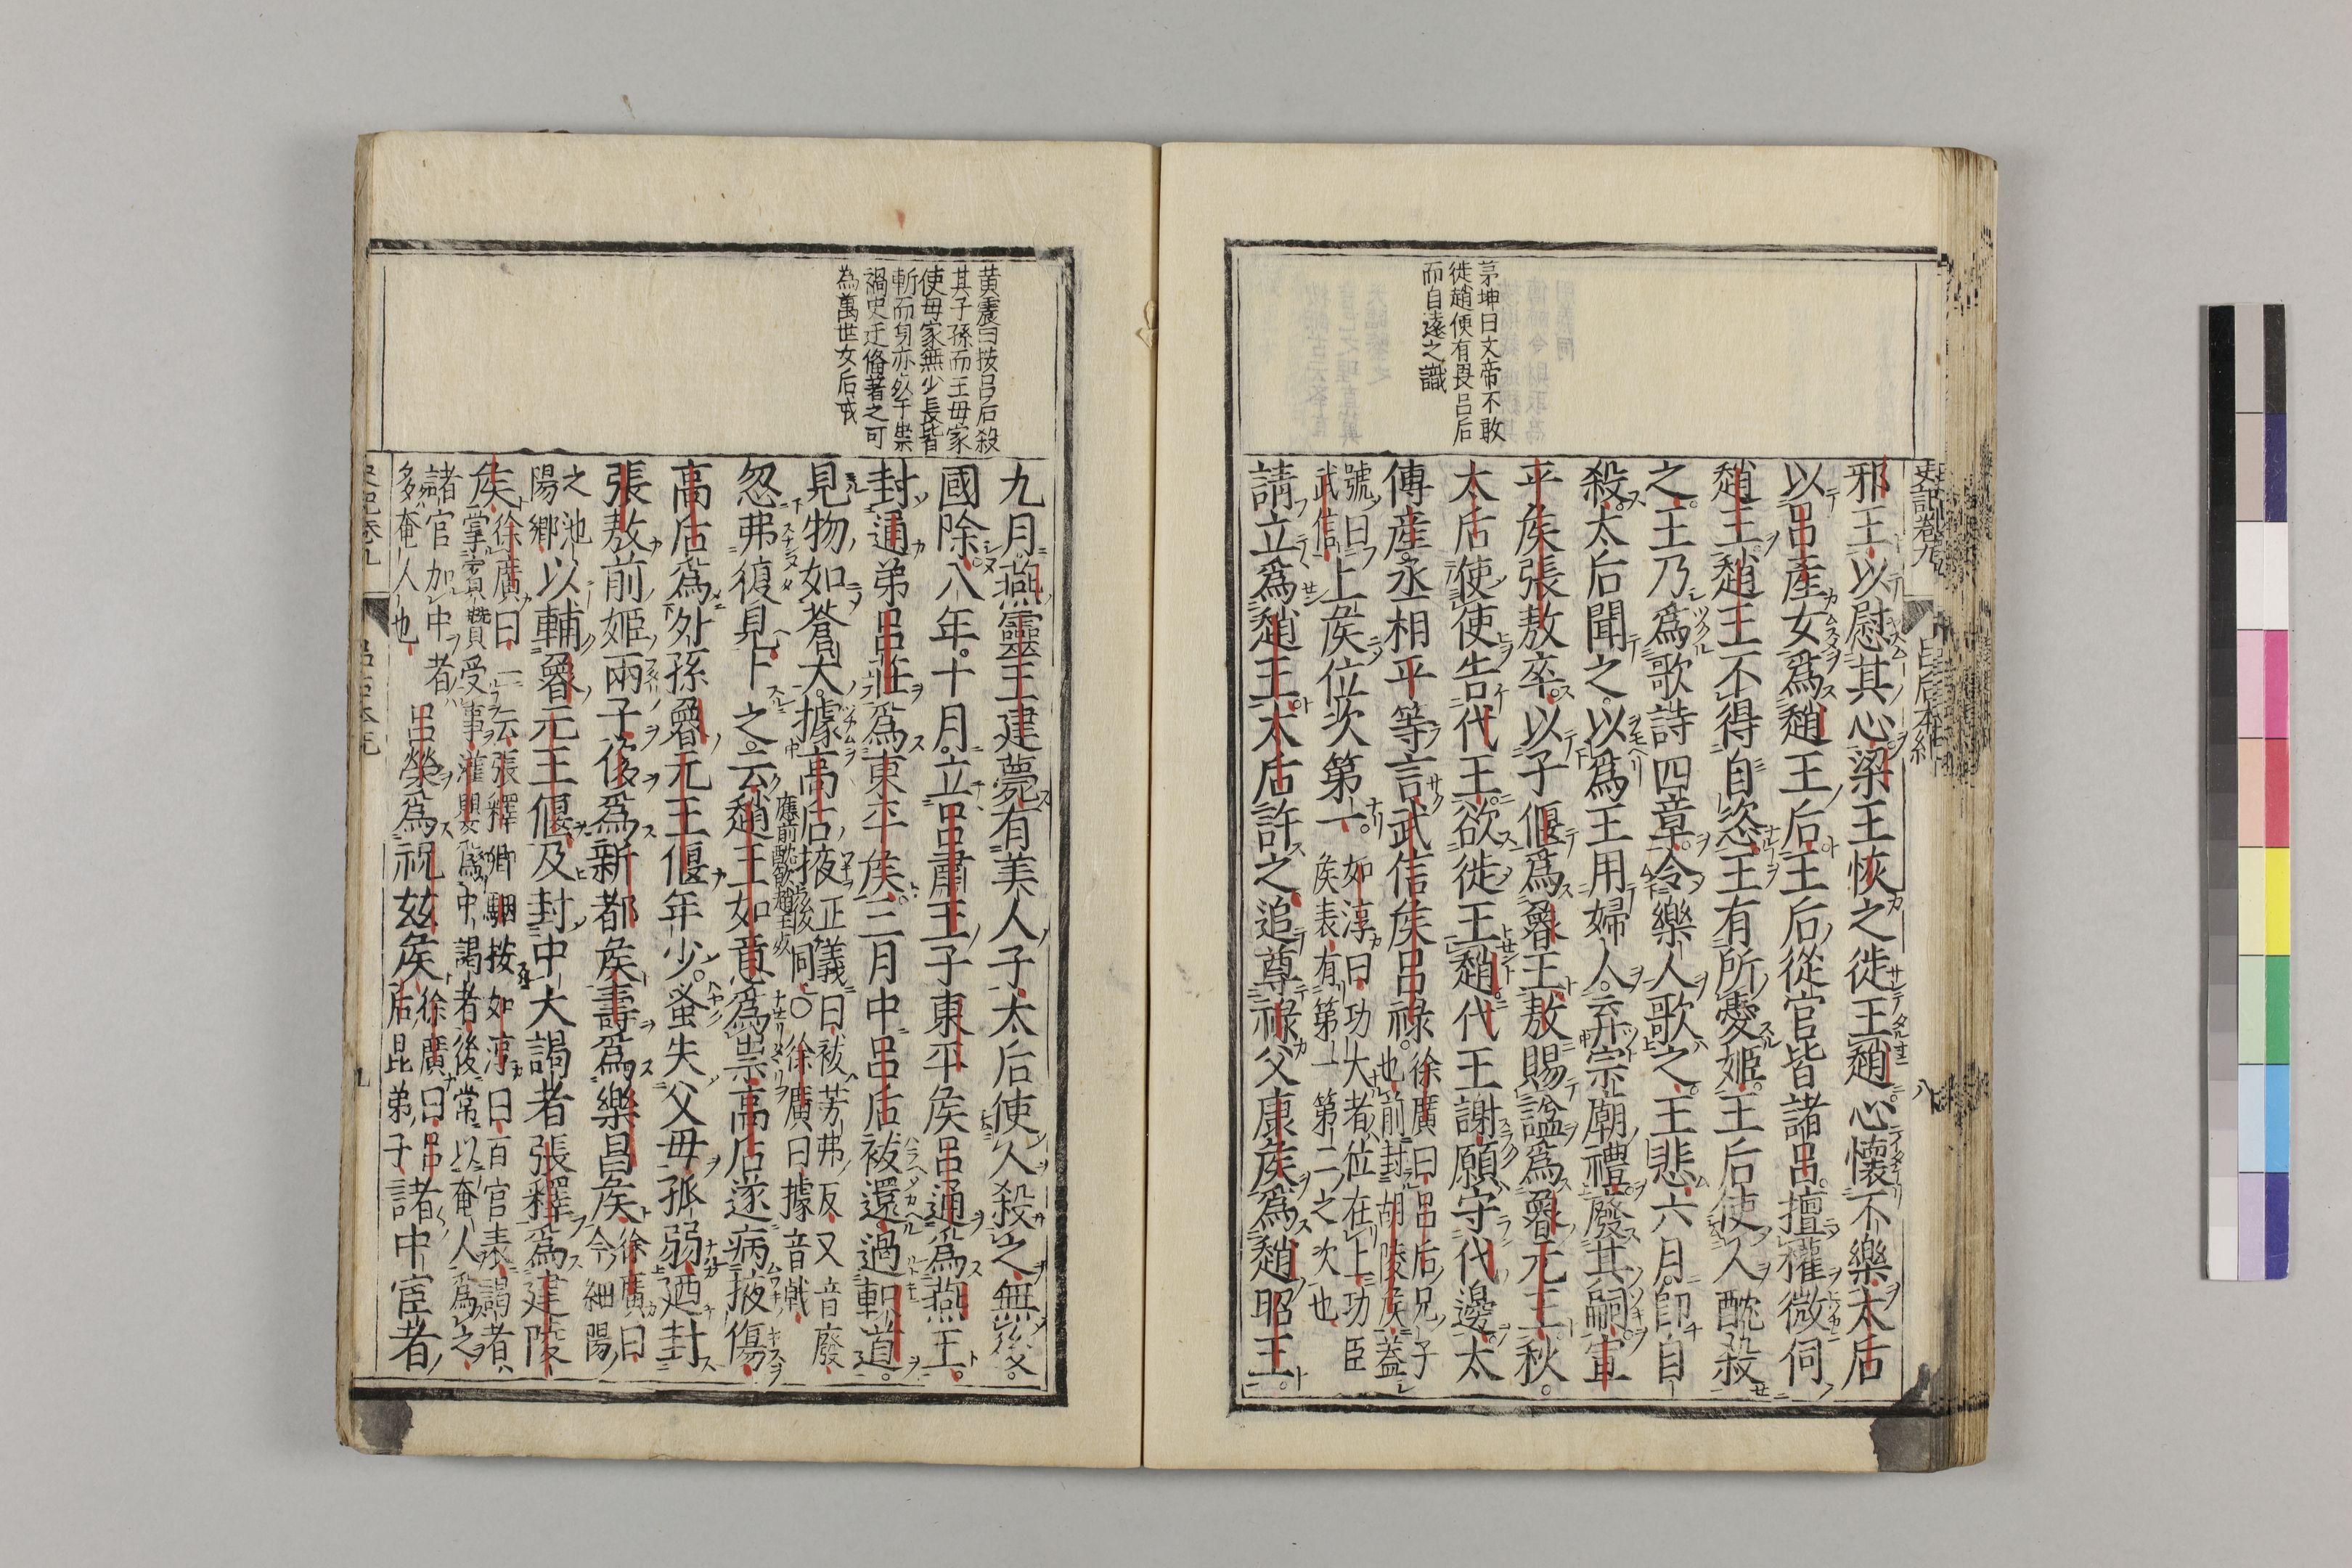 茅坤曰文帝不敢
徙趙便有畏呂后
而自遠之識
史記卷九
呂后本紀
八
邪王以慰其心梁王恢之徙王趙心懷不樂太后
以呂產女爲趙王后王后從官皆諸呂擅權微伺
趙王趙王不得自恣王有所愛姬王后使人酖殺
之王乃爲歌詩四章令樂人歌之王悲六月卽自
殺太后聞之以爲王用婦人弃宗廟禮廢其嗣宣
平矦張敖卒以子偃爲魯王敖賜諡爲魯元王秋
太后使使告代王欲徙王趙代王謝願守代邊太
傅產丞相平等言武信矦呂祿
徐廣曰呂后兄子
也前封胡陵矦蓋
號曰
武信
上矦位次第一
如淳曰功大者位在上功臣
矦表有第一第二之次也
請立爲趙王太后許之追尊祿父康矦爲趙昭王
黄震曰按呂后殺
其子孫而王毋家
使毋家無少長皆
斬而身亦以于祟
禍史迁俻著之可
為萬世女后戒
九月燕靈王建薨有美人子太后使人殺之無後
國除八年十月立呂肅王子東平矦呂通爲燕王
封通弟呂莊爲東平矦三月中呂后祓還過軹道
見物如蒼犬據高后掖
正義曰祓芳弗反又音廢
後同○徐廣曰據音戟
忽弗復見卜之云趙王如意爲祟高后遂病掖傷
高后爲外孫魯元王偃年少蚤失父毋孤弱廼封
張敖前姬兩子侈爲新都矦壽爲樂昌矦
徐廣曰
今細陽
之池
陽鄉
以輔魯元王偃及封中大謁者張釋爲建陵
矦
徐廣曰一云張釋卿駰按如淳曰百官表謁者
掌賓贊受事灌嬰爲中謁者後常以奄人爲之
諸官加中者
多奄人也
呂榮爲祝茲矦
徐廣曰呂
后昆弟子
諸中宦者
史記卷九
呂后本紀
九